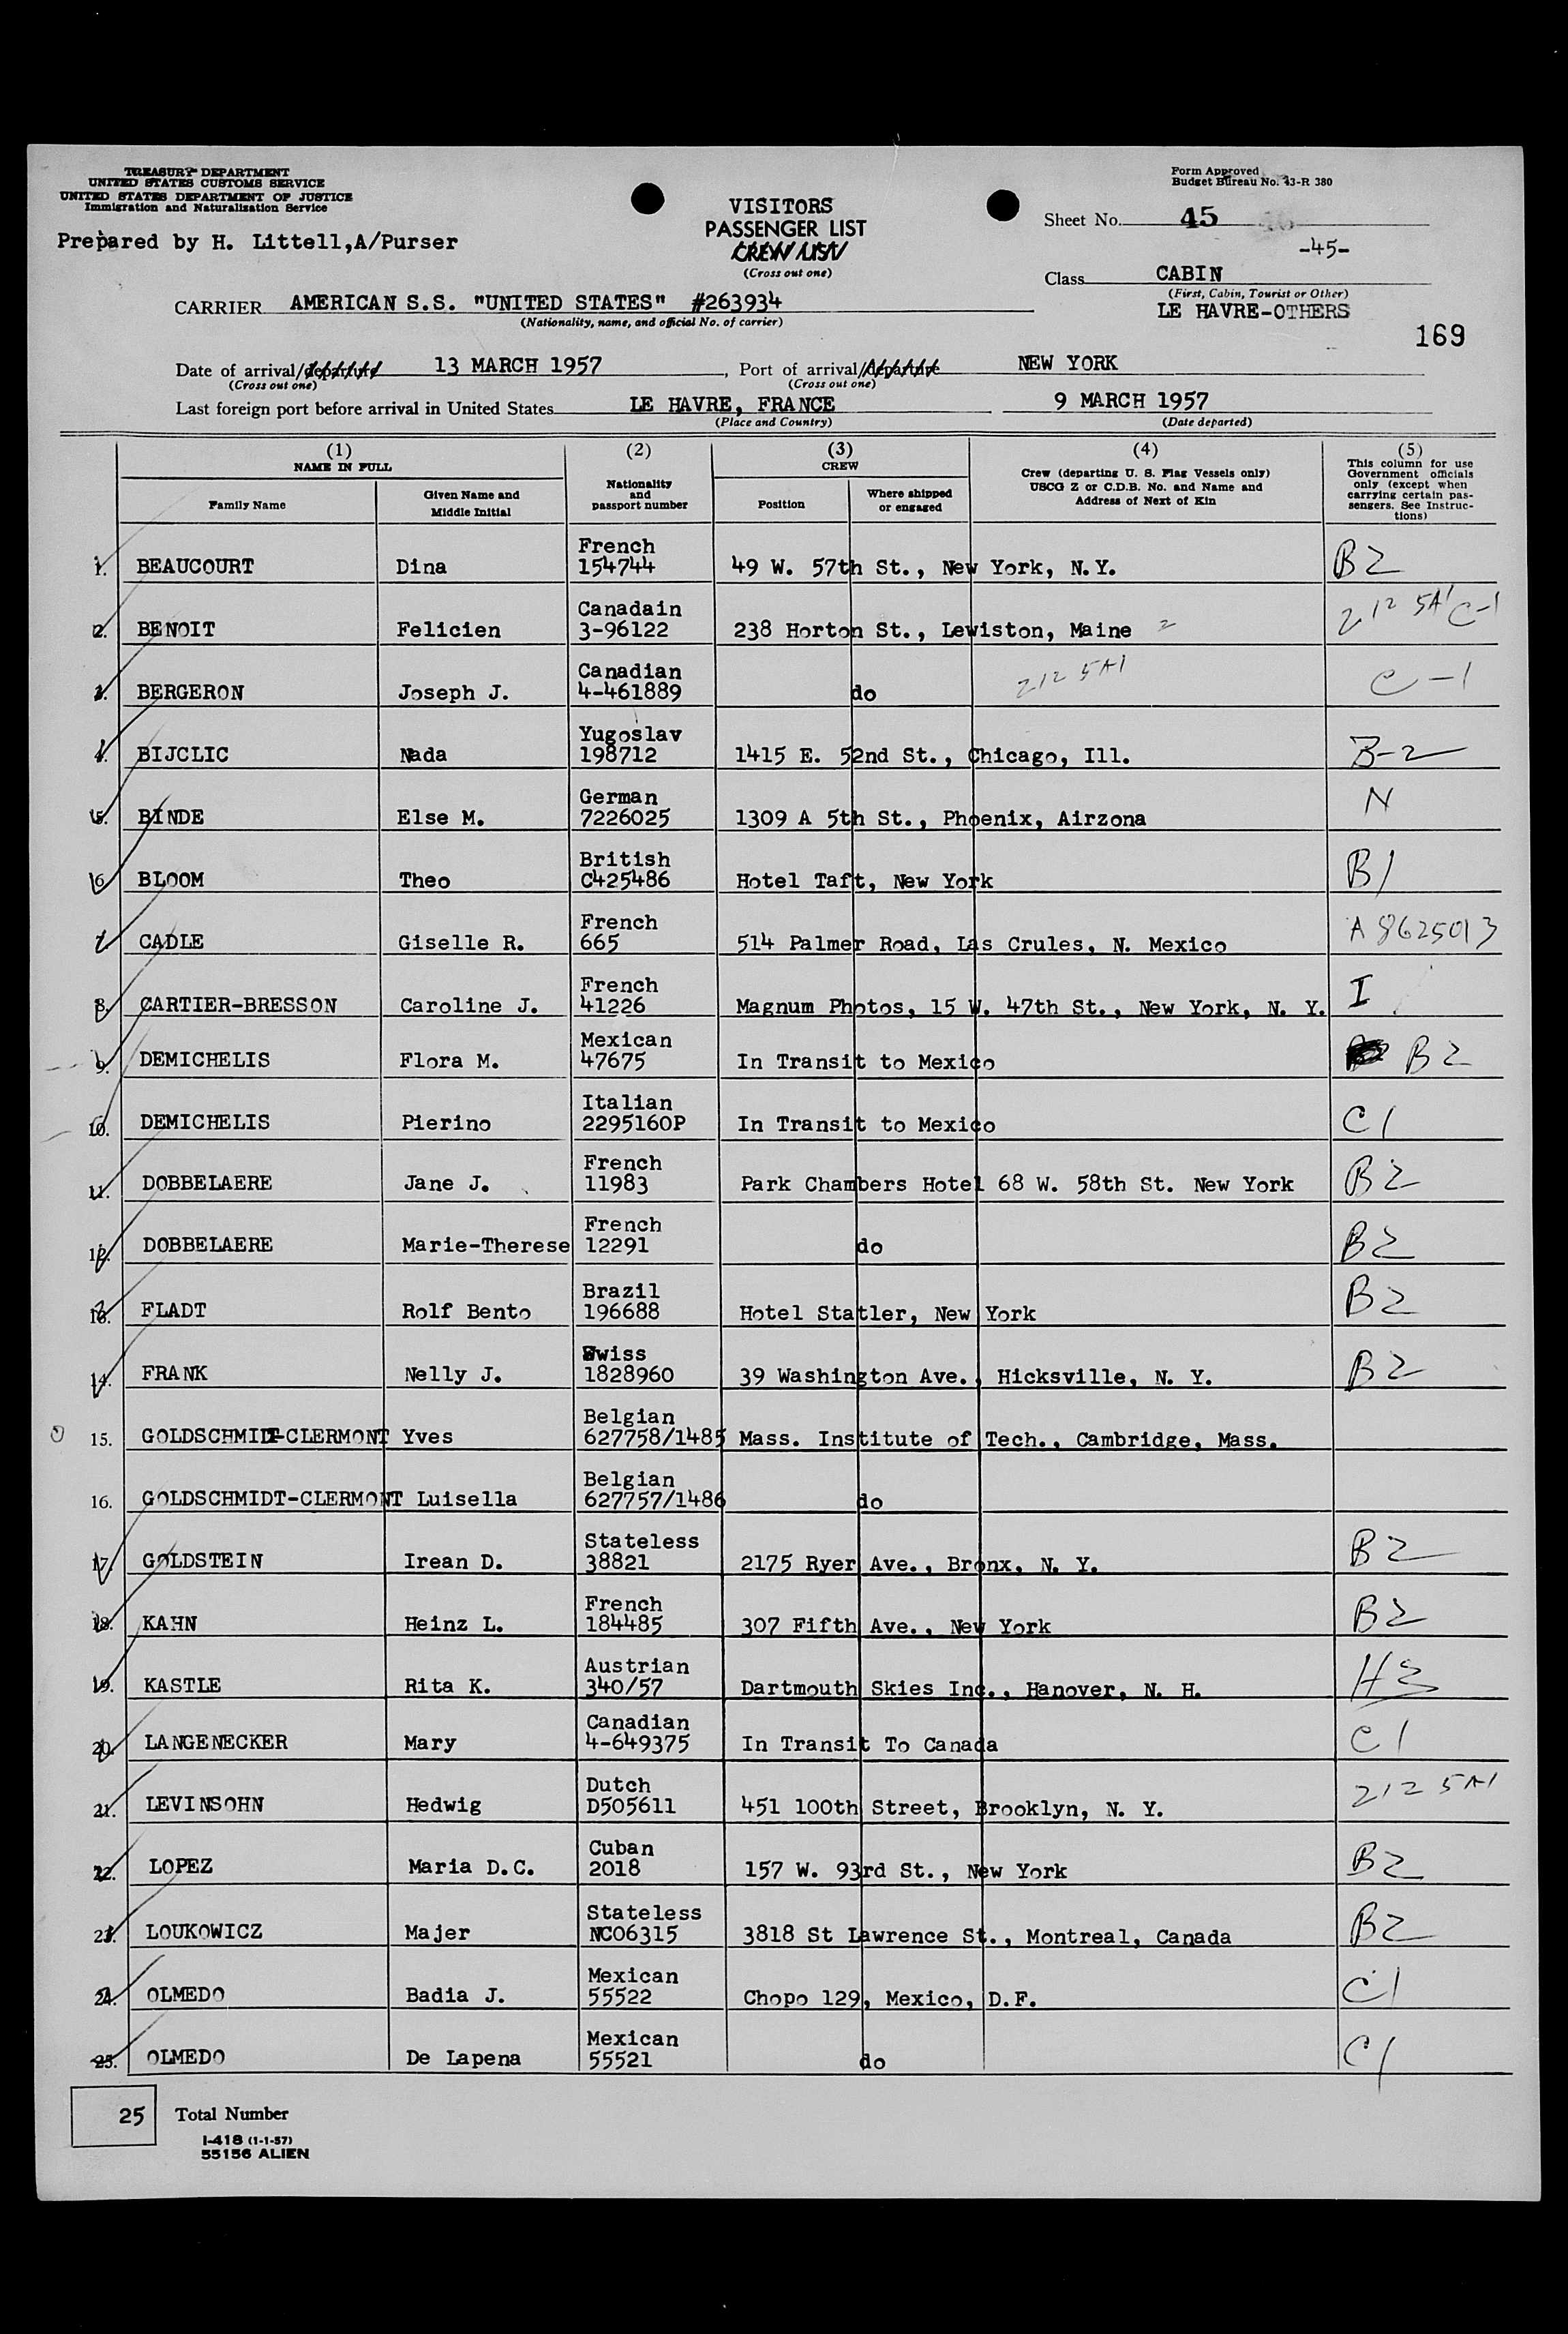 TREASURY DEPARTMENT
UNITED STATES CUSTOMS SERVICE
UNITED STATES DEPARTMENT OF JUSTICE
Immigration and Naturalization Service
Prepared by H. Littell,A/Purser
VISITORS
PASSENGER LIST
CREW LIST
(Cross out one)
Form Approved
Budget Bureau No. 43-R 380
Sheet No. 45
-45-
Class CABIN
(First, Cabin, Tourist or Other)
LE HAVRE-OTHERS
169
CARRIER AMERICAN S.S. "UNITED STATES" #263934
(Nationality, name, and official No. of carrier)
Date of arrival/departure 13 MARCH 1957, Port of arrival/departure NEW YORK
(Cross out one) (Cross out one)
Last foreign port before arrival in United States LE HAVRE, FRANCE 9 MARCH 1957
(Place and Country) (Date departed)
(1) NAME IN FULL
Family Name
Given Name and Middle Initial
(2)
Nationality and passport number
(3) CREW
Position
Where shipped or engaged
(4)
Crew (departing U. S. Flag Vessels only)
USCG Z or C.D.B. No. and Name and
Address of Next of Kin
(5)
This column for use
Government officials
only (except when
carrying certain pas-
sengers. See Instruc-
tions)
1. BEAUCOURT Dina French 154744 49 W. 57th St., New York, N.Y. B2
2. BENOIT Felicien Canadain 3-96122 238 Horton St., Lewiston, Maine 2 212 5A1 C-1
3. BERGERON Joseph J. Canadian 4-461889 do 212 5A1 C-1
4. BIJCLIC Nada Yugoslav 198712 1415 E. 52nd St., Chicago, Ill. B-2
5. BINDE Else M. German 7226025 1309 A 5th St., Phoenix, Airzona N
6. BLOOM Theo British C425486 Hotel Taft, New York B1
7. CADLE Giselle R. French 665 514 Palmer Road, Las Crules, N. Mexico A 8625013
8. CARTIER-BRESSON Caroline J. French 41226 Magnum Photos, 15 W. 47th St., New York, N. Y. I
9. DEMICHELIS Flora M. Mexican 47675 In Transit to Mexico B2
10. DEMICHELIS Pierino Italian 2295160P In Transit to Mexico C1
11. DOBBELAERE Jane J. French 11983 Park Chambers Hotel 68 W. 58th St. New York B2
12. DOBBELAERE Marie-Therese French 12291 do B2
13. FLADT Rolf Bento Brazil 196688 Hotel Statler, New York B2
14. FRANK Nelly J. Swiss 1828960 39 Washington Ave., Hicksville, N. Y. B2
15. GOLDSCHMIDT-CLERMONT Yves Belgian 627758/1485 Mass. Institute of Tech., Cambridge, Mass.
16. GOLDSCHMIDT-CLERMONT Luisella Belgian 627757/1486 do
17. GOLDSTEIN Irean D. Stateless 38821 2175 Ryer Ave., Bronx, N. Y. B2
18. KAHN Heinz L. French 184485 307 Fifth Ave., New York B2
19. KASTLE Rita K. Austrian 340/57 Dartmouth Skies Inc., Hanover, N. H. H3
20. LANGENECKER Mary Canadian 4-649375 In Transit To Canada C1
21. LEVINSOHN Hedwig Dutch D505611 451 100th Street, Brooklyn, N. Y. 212 5A1
22. LOPEZ Maria D.C. Cuban 2018 157 W. 93rd St., New York B2
23. LOUKOWICZ Majer Stateless NC06315 3818 St Lawrence St., Montreal, Canada B2
24. OLMEDO Badia J. Mexican 55522 Chopo 129, Mexico, D.F. C1
25. OLMEDO De Lapena Mexican 55521 do C1
25 Total Number
I-418 (1-1-57)
55156 ALIEN